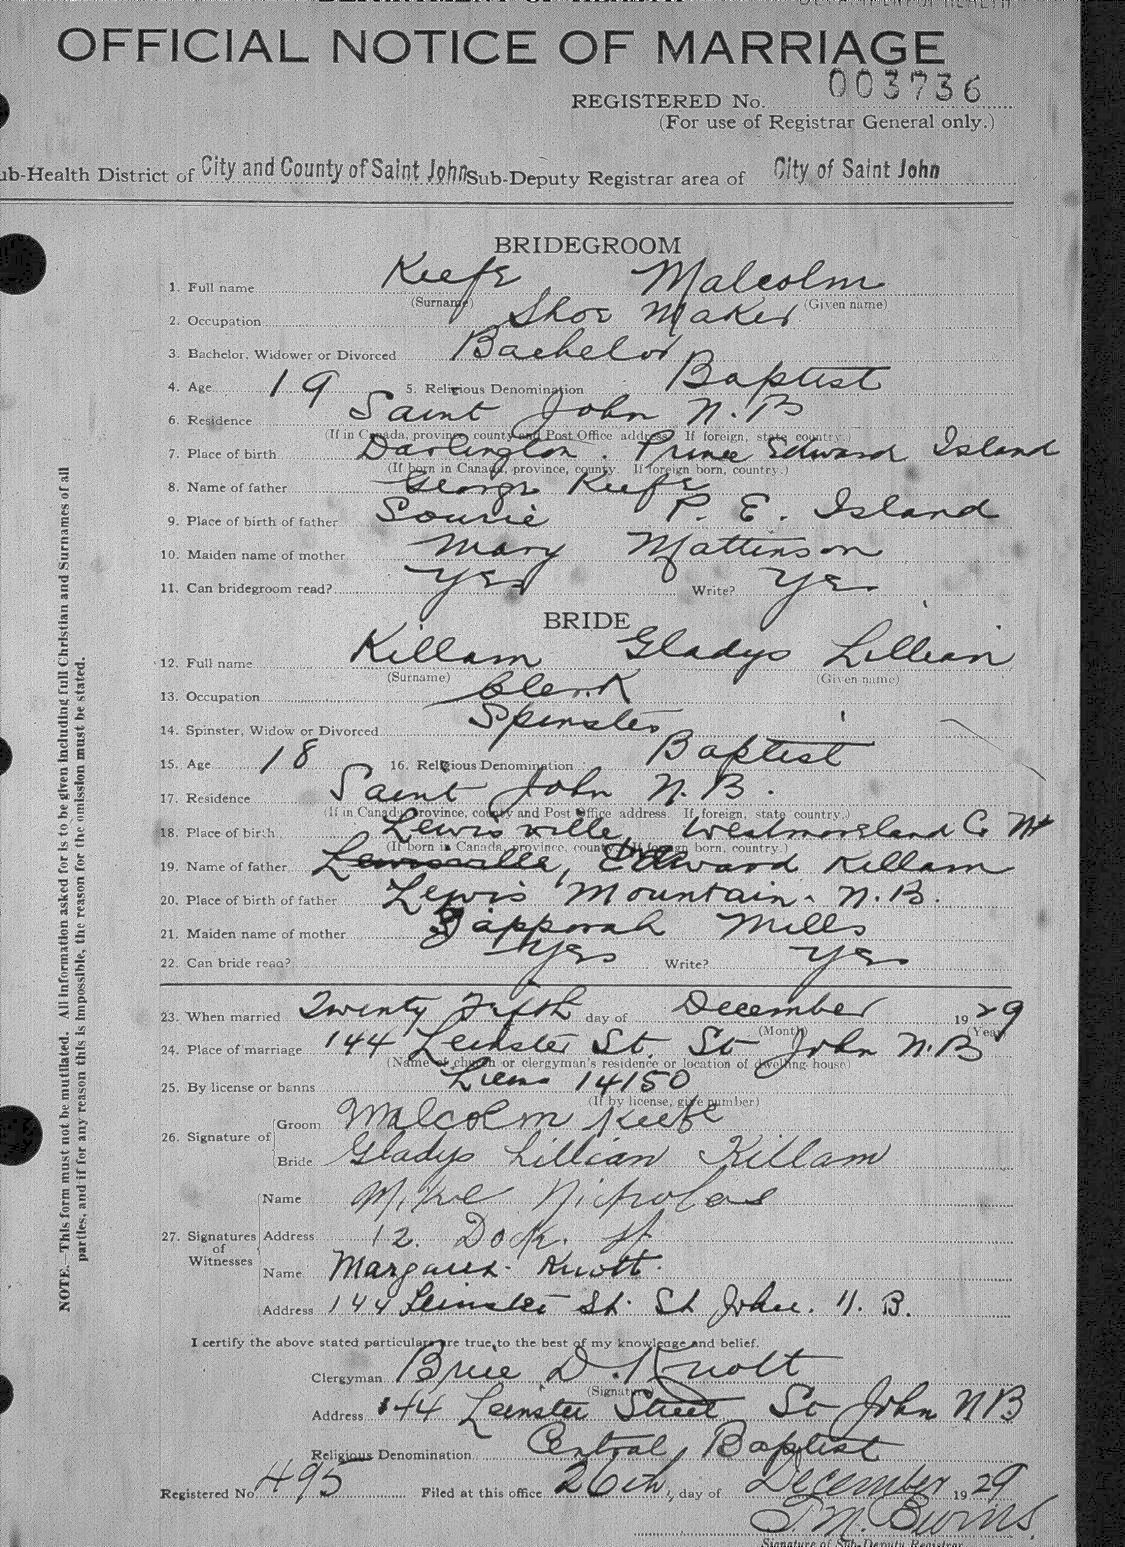 OFFICIAL NOTICE OF MARRIAGE
REGISTERED No. 003736
(For use of Registrar General only.)
ub-Health District of City and County of Saint John Sub-Deputy Registrar area of City of Saint John
BRIDEGROOM
1. Full name Keefe Malcolm
(Surname) (Given name)
2. Occupation Shoe Maker
3. Bachelor, Widower or Divorced Bachelor
4. Age 19 5. Religious Denomination Baptist
6. Residence Saint John N.B
(If in Canada, province, county and Post Office address. If foreign, state country.)
7. Place of birth Darlington. Prince Edward Island
(If born in Canada, province, county. If foreign born, country.)
8. Name of father George Keefe
9. Place of birth of father Sourie P. E. Island
10. Maiden name of mother Mary Mattinson
11. Can bridegroom read? Yes Write? Yes
BRIDE
12. Full name Killam Gladys Lillian
(Surname) (Given name)
13. Occupation Clerk
14. Spinster, Widow or Divorced Spinster
15. Age 18 16. Religious Denomination Baptist
17. Residence Saint John N.B.
(If in Canada, province, county and Post Office address. If foreign, state country.)
18. Place of birth Lewisville, Westmoreland Co
(If born in Canada, province, county. If foreign born, country.)
19. Name of father Lewisville, Edward Killam
20. Place of birth of father Lewis Mountain. N.B.
21. Maiden name of mother Zapporah Mills
22. Can bride read? Yes Write? Yes
23. When married Twenty Fifth day of December 1929
(Month) (Year)
24. Place of marriage 144 Leinster St. St John N.B
(Name of church or clergyman's residence or location of dwelling house)
25. By license or banns Licens 14150
(If by license, give number)
26. Signature of Groom Malcolm Keefe
Bride Gladys Lillian Killam
27. Signatures of Witnesses Name Mike Nicholas
Address 12. Dock. St
Name Margaret Knott.
Address 144 Leinster St. St John. N. B.
I certify the above stated particulars are true to the best of my knowledge and belief.
Clergyman Brice D. Knott
(Signature)
Address 144 Leinster Street St John NB
Religious Denomination Central Baptist
Registered No. 495 Filed at this office 26th, day of December 1929
T.M. Burns.
Signature of Sub-Deputy Registrar
NOTE.—This form must not be mutilated. All information asked for is to be given including full Christian and Surnames of all
parties, and if for any reason this is impossible, the reason for the omission must be stated.